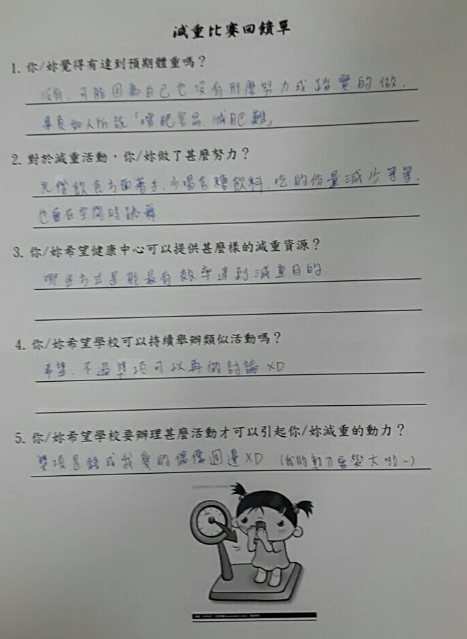 減重比賽回饋單
1. 你/妳覺得有達到預期體重嗎？
沒有，可能因為自己也沒有那麼努力或踏實的做，
果真如人所說「增肥容易，減肥難」
2. 對於減重活動，你/妳做了甚麼努力？
先從飲食方面著手，少喝含糖飲料，吃的份量減少等等，
也會在空閒時跳舞
3. 你/妳希望健康中心可以提供甚麼樣的減重資源？
哪些方式是能最有效率達到減重目的
4. 你/妳希望學校可以持續舉辦類似活動嗎？
希望，不過獎項可以再做討論XD
5. 你/妳希望學校要辦理甚麼活動才可以引起你/妳減重的動力？
獎項是錢或我愛的偶像週邊XD (我的動力會變大呦~)